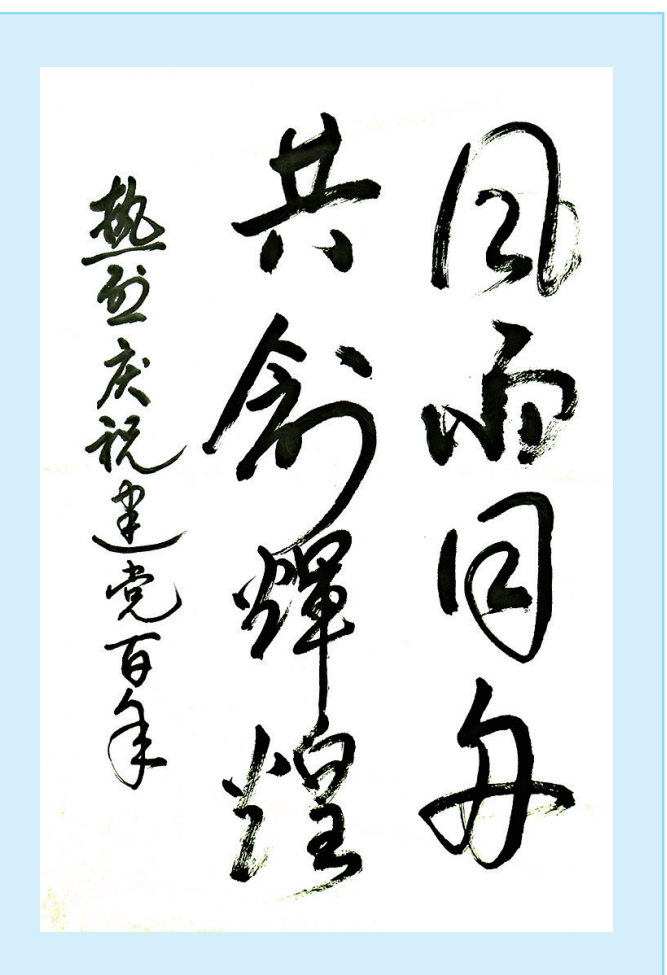 风雨同舟
共创輝煌
热烈庆祝建党百年